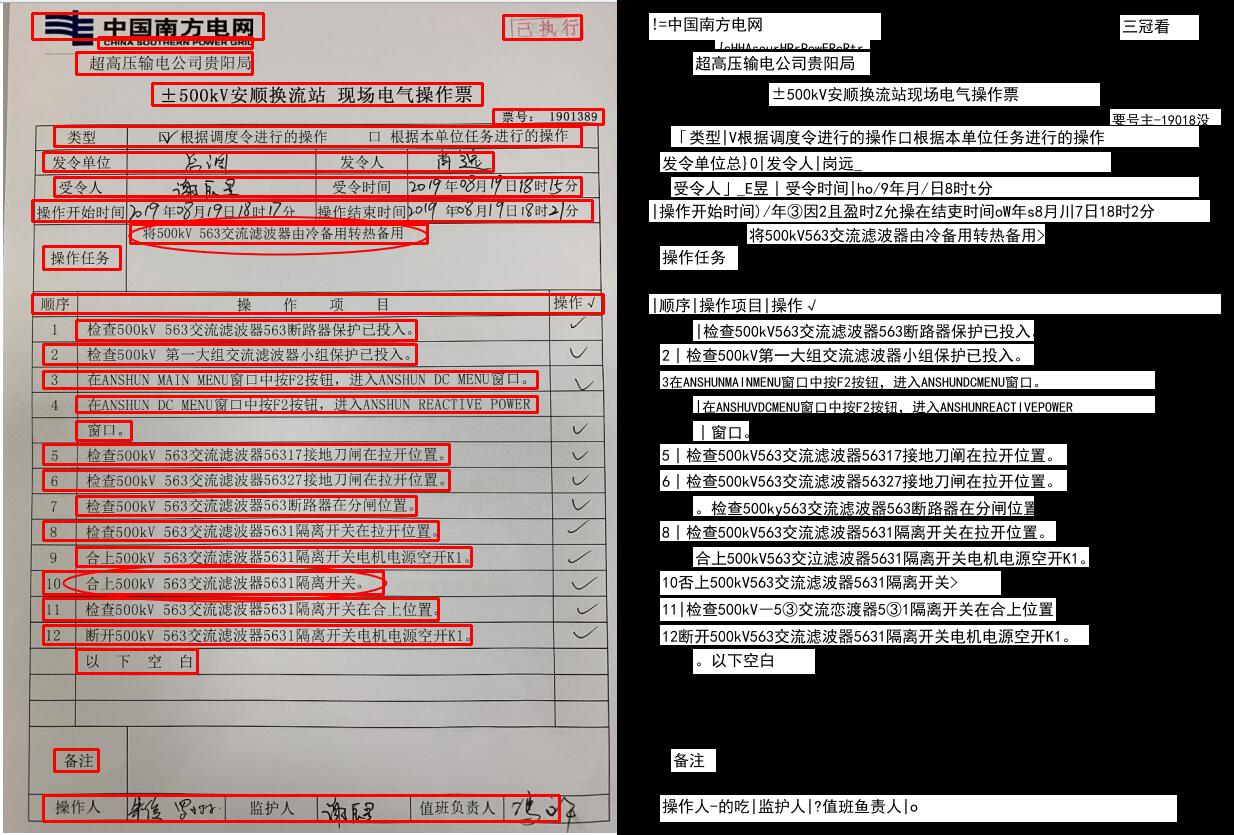 中国南方电网
CHINA SOUTHERN POWER GRID
已执行
超高压输电公司贵阳局
±500kV安顺换流站 现场电气操作票
票号: 1901389
类型 ☑根据调度令进行的操作 □ 根据本单位任务进行的操作
发令单位 总调 发令人
受令人 受令时间 2019年08月19日18时15分
操作开始时间 2019年08月19日18时17分 操作结束时间 2019年08月19日18时21分
将500kV 563交流滤波器由冷备用转热备用
操作任务
顺序 操 作 项 目 操作√
1 检查500kV 563交流滤波器563断路器保护已投入。 ✓
2 检查500kV 第一大组交流滤波器小组保护已投入。 ✓
3 在ANSHUN MAIN MENU窗口中按F2按钮，进入ANSHUN DC MENU窗口。 ✓
4 在ANSHUN DC MENU窗口中按F2按钮，进入ANSHUN REACTIVE POWER
窗口。 ✓
5 检查500kV 563交流滤波器56317接地刀闸在拉开位置。 ✓
6 检查500kV 563交流滤波器56327接地刀闸在拉开位置。 ✓
7 检查500kV 563交流滤波器563断路器在分闸位置。 ✓
8 检查500kV 563交流滤波器5631隔离开关在拉开位置。 ✓
9 合上500kV 563交流滤波器5631隔离开关电机电源空开K1。 ✓
10 合上500kV 563交流滤波器5631隔离开关。 ✓
11 检查500kV 563交流滤波器5631隔离开关在合上位置。 ✓
12 断开500kV 563交流滤波器5631隔离开关电机电源空开K1。 ✓
以 下 空 白
备注
操作人 监护人 值班负责人
!=中国南方电网
三冠看
超高压输电公司贵阳局
±500kV安顺换流站现场电气操作票
要号主-19018没
「类型|V根据调度令进行的操作口根据本单位任务进行的操作
发令单位总}0|发令人|岗远_
受令人」_E昱|受令时间|ho/9年月/日8时t分
|操作开始时间)/年③因2且盈时Z允操在结束时间oW年s8月川7日18时2分
将500kV563交流滤波器由冷备用转热备用>
操作任务
|顺序|操作项目|操作√
|检查500kV563交流滤波器563断路器保护已投入.
2|检查500kV第一大组交流滤波器小组保护已投入。
3在ANSHUNMAINMENU窗口中按F2按钮，进入ANSHUNDCMENU窗口。
|在ANSHUVDCMENU窗口中按F2按钮，进入ANSHUNREACTIVEPOWER
|窗口。
5|检查500kV563交流滤波器56317接地刀阐在拉开位置。
6|检查500kV563交流滤波器56327接地刀闸在拉开位置。
。检查500ky563交流滤波器563断路器在分闸位置
8|检查500kV563交流滤波器5631隔离开关在拉开位置。
合上500kV563交泣滤波器5631隔离开关电机电源空开K1。
10否上500kV563交流滤波器5631隔离开关>
11|检查500kV—5③交流恋渡器5③1隔离开关在合上位置
12断开500kV563交流滤波器5631隔离开关电机电源空开K1。
。以下空白
备注
操作人-的吃|监护人|?值班鱼责人|o